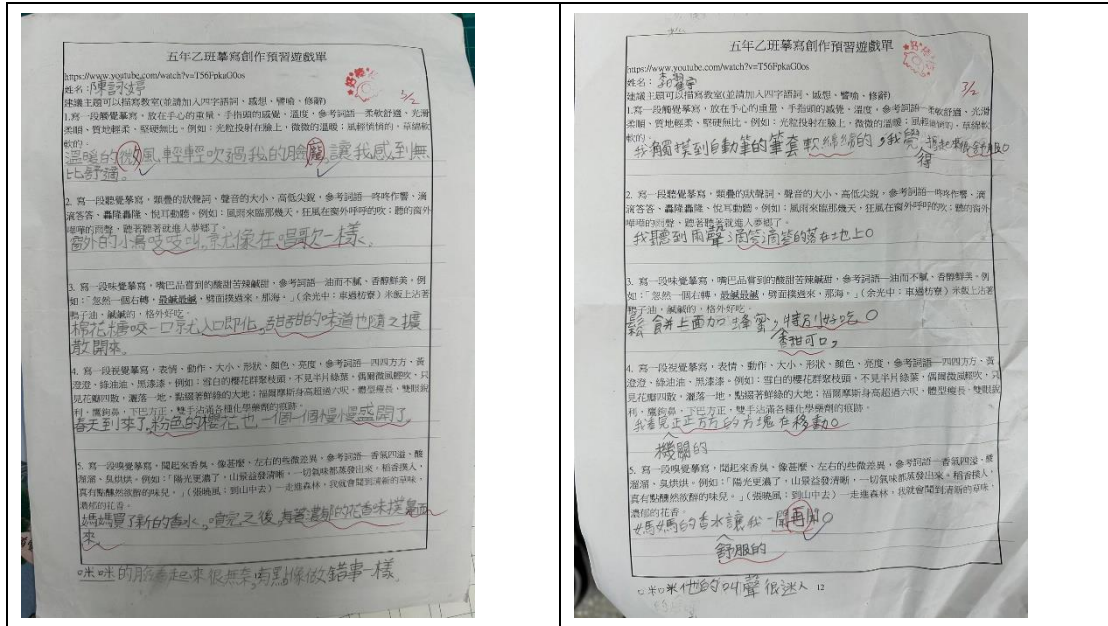 五年乙班摹寫創作預習遊戲單
https://www.youtube.com/watch?v=T56FpkaG0os
姓名:陳詠婷
5/2
建議主題可以描寫教室(並請加入四字語詞、感想、譬喻、修辭)
1.寫一段觸覺摹寫,放在手心的重量、手指頭的感覺、溫度,參考詞語—柔軟舒適、光滑
柔順、質地輕柔、堅硬無比。例如:光粒投射在臉上,微微的溫暖;風輕悄悄的,草綿軟
軟的。
溫暖的微風,輕輕吹過我的臉龐,讓我感到無
比舒適。
2. 寫一段聽覺摹寫,類疊的狀聲詞、聲音的大小、高低尖銳,參考詞語—咚咚作響、滴
滴答答、轟隆轟隆、悅耳動聽。例如:風雨來臨那幾天,狂風在窗外呼呼的吹;聽的窗外
嘩嘩的雨聲,聽著聽著就進入夢鄉了。
窗外的小鳥吱吱叫,就像在唱歌一樣。
3. 寫一段味覺摹寫,嘴巴品嘗到的酸甜苦辣鹹甜,參考詞語—油而不膩、香醇鮮美。例
如:「忽然一個右轉,最鹹最鹹,劈面撲過來,那海。」(余光中:車過枋寮)米飯上沾著
鴨子油,鹹鹹的,格外好吃。
棉花糖咬一口就入口即化,甜甜的味道也隨之擴
散開來。
4. 寫一段視覺摹寫,表情、動作、大小、形狀、顏色、亮度,參考詞語—四四方方、黃
澄澄、綠油油、黑漆漆。例如:雪白的櫻花群聚枝頭,不見半片綠葉,偶爾微風輕吹,只
見花瓣四散,灑落一地,點綴著鮮綠的大地;福爾摩斯身高超過六呎,體型瘦長,雙眼銳
利,鷹鉤鼻,下巴方正,雙手沾滿各種化學藥劑的痕跡。
春天到來了,粉色的櫻花也一個一個慢慢盛開了。
5. 寫一段嗅覺摹寫,聞起來香臭、像甚麼、左右的些微差異,參考詞語—香氣四溢、酸
溜溜、臭烘烘。例如:「陽光更濃了,山景益發清晰,一切氣味都蒸發出來。稻香撲人,
真有點醺然欲醉的味兒。」(張曉風:到山中去)一走進森林,我就會聞到清新的草味,
濃郁的花香。
媽媽買了新的香水,噴完之後,有著濃郁的花香味撲鼻而
來。
咪咪的臉看起來很無奈,有點像做錯事一樣。
五年乙班摹寫創作預習遊戲單
https://www.youtube.com/watch?v=T56FpkaG0os
姓名:
建議主題可以描寫教室(並請加入四字語詞、感想、譬喻、修辭)
1.寫一段觸覺摹寫,放在手心的重量、手指頭的感覺、溫度,參考詞語—柔軟舒適、光滑
柔順、質地輕柔、堅硬無比。例如:光粒投射在臉上,微微的溫暖;風輕悄悄的,草綿軟
軟的。
我觸摸到自動筆的筆套軟綿綿的,我覺得握起來很舒服。
2. 寫一段聽覺摹寫,類疊的狀聲詞、聲音的大小、高低尖銳,參考詞語—咚咚作響、滴
滴答答、轟隆轟隆、悅耳動聽。例如:風雨來臨那幾天,狂風在窗外呼呼的吹;聽的窗外
嘩嘩的雨聲,聽著聽著就進入夢鄉了。
我聽到雨聲滴答滴答的落在地上。
3. 寫一段味覺摹寫,嘴巴品嘗到的酸甜苦辣鹹甜,參考詞語—油而不膩、香醇鮮美。例
如:「忽然一個右轉,最鹹最鹹,劈面撲過來,那海。」(余光中:車過枋寮)米飯上沾著
鴨子油,鹹鹹的,格外好吃。
鬆餅上面加蜂蜜,特別好吃。
香甜可口,
4. 寫一段視覺摹寫,表情、動作、大小、形狀、顏色、亮度,參考詞語—四四方方、黃
澄澄、綠油油、黑漆漆。例如:雪白的櫻花群聚枝頭,不見半片綠葉,偶爾微風輕吹,只
見花瓣四散,灑落一地,點綴著鮮綠的大地;福爾摩斯身高超過六呎,體型瘦長,雙眼銳
利,鷹鉤鼻,下巴方正,雙手沾滿各種化學藥劑的痕跡。
我看見正正方方的方塊在移動。
機關的
5. 寫一段嗅覺摹寫,聞起來香臭、像甚麼、左右的些微差異,參考詞語—香氣四溢、酸
溜溜、臭烘烘。例如:「陽光更濃了,山景益發清晰,一切氣味都蒸發出來。稻香撲人,
真有點醺然欲醉的味兒。」(張曉風:到山中去)一走進森林,我就會聞到清新的草味,
濃郁的花香。
媽媽的香水讓我一聞再聞。
舒服的
咪咪他的叫聲很迷人 12